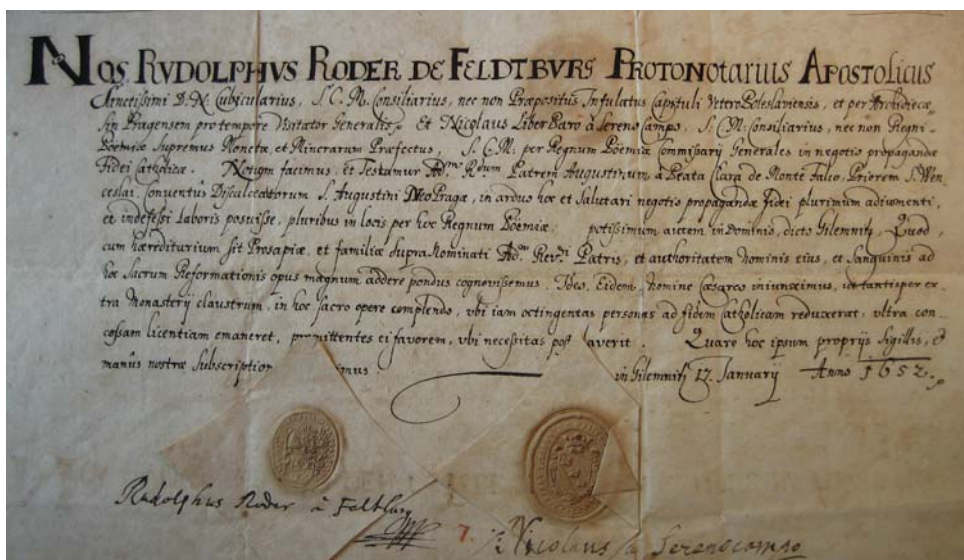 NOS RVDOLPHVS RODER DE FELDTBVRG PROTONOtARIUS APOSTOLICUS
Sanctissimi D. N. Cubicularius, S. C. M. Consiliarius, nec non Præpositus Infulatus Capituli VeteroBoleslaviensis, et per Archidiecæ,
sin Pragensem pro tempore Visitator Generalis. Et Nicolaus Liber Baro à Sereno Campo, S. C. M. Consiliarius, nec non Regni
Boëmiæ Supremus Monetæ, et Minerarum Præfectus, S. C. M. per Regnum Boëmiæ Commissarij Generales in negotio propagandæ
Fidei Catholicæ. Notum facimus, et Testamur Ad.m R.dum Patrem Augustinum à Beata Clara de Monte Falco, Priorem S. Wen-
ceslai, Conventûs Discalceatorum S. Augustini NeoPragæ, in arduo hoc et Salutari negotio propagandæ fidei plurimum adiumenti,
et indefessi Laboris posuisse, pluribus in locis per hoc Regnum Boëmiæ, potissimum autem in Dominio, dicto Gilemnitz, Quod,
cum hæreditarium sit Prosapiæ, et familiæ supra Nominati Ad.m Rev.di Patris, et authoritatem Nominis eius, et Sanguinis ad
hoc Sacrum Reformationis opus magnum addere pondus cognovissemus. Ideo, Eidem, Nomine Cæsareo iniunximus, ut tantisper ex-
tra Monasterij claustrum, in hoc sacro opere complendo, vbi iam octingentas personas ad fidem Catholicam reduxerat, vltra con-
cessam licentiam emaneret, promittentes ei favorem, vbi necessitas laverit. Quare hoc ipsum proprijs Sigillis, et
manûs nostræ Subscription imus in Gilemnitz 17. Januarij Anno 1652.
Rudolphus Roder à Feltburg
7. Nicolaus à Serenocampo